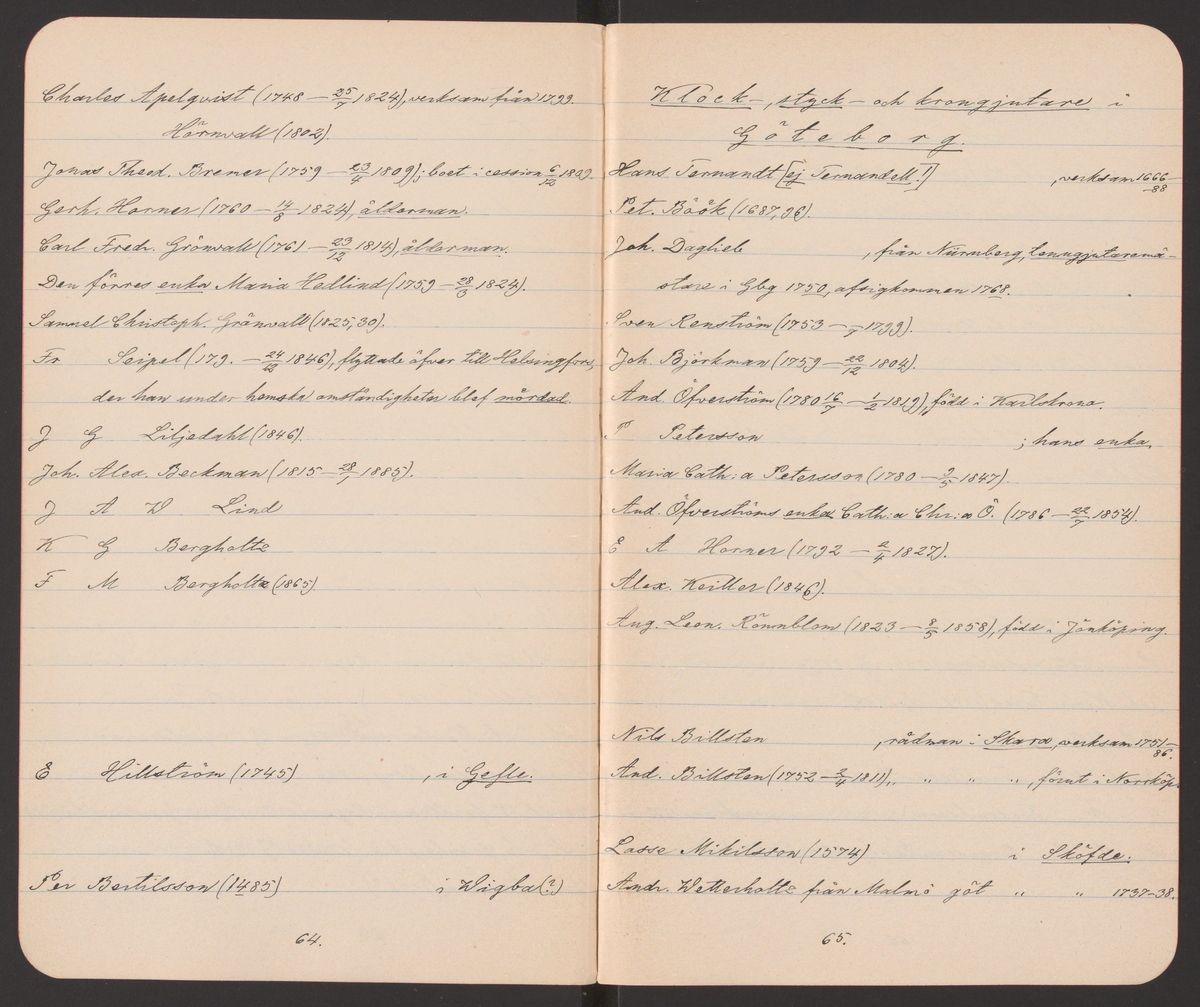 Charles Apelqvist (1748 — 25/7 1824), verksam från 1799.
Hörnvall (1802).
Jonas Theod. Bremer (1759 — 23/4 1809); boet i cession 6/12 1809.
Gerh. Horner (1760 — 14/8 1824), ålderman.
Carl Fredr. Grönvall (1761 — 23/12 1814), ålderman.
Den förres enka Maria Hellind (1759 — 28/3 1824).
Samuel Christoph. Grönvall (1825, 30).
Fr Seipel (179. — 24/12 1846), flyttade öfver till Helsingfors,
der han under hemska omständigheter blef mördad.
J G Liljedahl (1846).
Joh. Alex. Beckman (1815 — 28/1 1885).
J A W Lind
K G Bergholtz
F M Bergholtz (1865).
E Hillström (1745) , i Gefle.
Per Bertilsson (1485) i Wigba (?)
64.
Klock-, styck- och krongjutare i
Göteborg.
Hans Ternandt [ej Ternandell!] , verksam 1666—88
Pet. Böök (1687, 96).
Joh. Daglieb , från Nürnberg, tenngjutaremä-
stare i Gbg 1750, afsigkommen 1768.
Sven Renström (1753 — /7 1799).
Joh. Björkman (1759 — 22/12 1804).
And. Öfverström (1780 16/7 — 1/2 1819), född i Karlskrona.
P Petersson ; hans enka
Maria Cath:a Petersson (1780 — 9/5 1847).
And. Öfverströms enka Cath:a Chr:a Ö. (1786 — 22/7 1854).
E A Horner (1792 — 2/4 1827).
Alex. Keiller (1846).
Aug. Leon. Rönnblom (1823 — 8/5 1858), född i Jönköping.
Nils Billsten , rådman i Skara, verksam 1751—86.
And. Billsten (1752 — 3/4 1811), „ „ „ , förut i Norrköp.
Lasse Mikilsson (1574) i Sköfde.
Andr. Wetterholtz från Malmö göt „ „ 1737—38.
65.